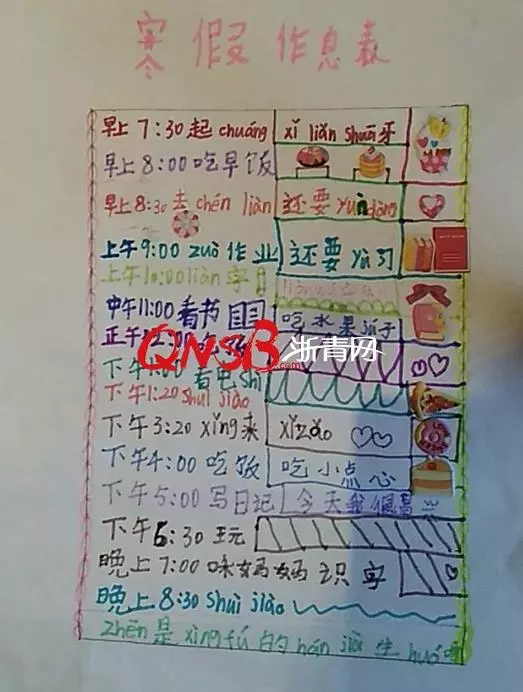 寒假作息表
早上7:30起chuáng xǐ liǎn shuā牙
早上8:00吃早饭
早上8:30去chén liàn 还要yùn dòng
上午9:00 zuò作业 还要yù习
上午10:00 liàn字
中午11:00看书 吃水果
正午12:00
QNSB浙青网
下午1:00看电shì
下午1:20 shuì jiào
下午3:20 xǐng来 xǐ zǎo
下午4:00吃饭 吃小点心
下午5:00写日记 今天我很高兴
下午6:30玩
晚上7:00 妈妈 识字
晚上8:30 shuì jiào
zhēn是xìng fú的hán jià生huó